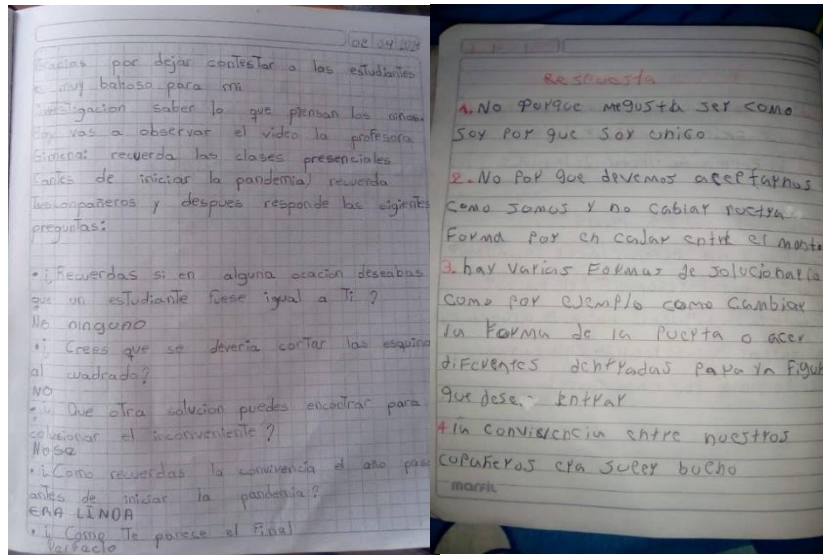 02 04 2021
Gracias por dejar contestar a los estudiantes
muy balioso para mi
investigacion saber lo que piensan los niños.
Hoy vas a observar el video la profesora
Gimena: recuerda las clases presenciales
(antes de iniciar la pandemia) recuerda
tus conpañeros y despues responde las sigientes
preguntas:
• ¿Recuerdas si en alguna ocacion deseabas
que un estudiante fuese igual a Ti ?
No ninguno
• ¿ Crees que se deveria cortar las esquina
al cuadrado?
NO
• ¿ Que otra solucion puedes encotrar para
colusionar el inconveniente ?
No se
• ¿ Como recuerdas la convivencia el año pasa
antes de iniciar la pandemia ?
ERA LINDA
• ¿ Como Te parece el Final
Perfecto
Respuesta
1. No porque megusta ser como
soy por que soy unico
2. No por que devemos aceptarnos
como somos y no cabiar nuctra
Forma por en calar entre el
3. hay varias Formas de solucionarlo
como por ejemplo como cambiar
la Forma de la puerta o acer
diFerentes dentradas para la Figur
que dese entrar
4 la convivencia entre nuestros
copañeros era super bueno